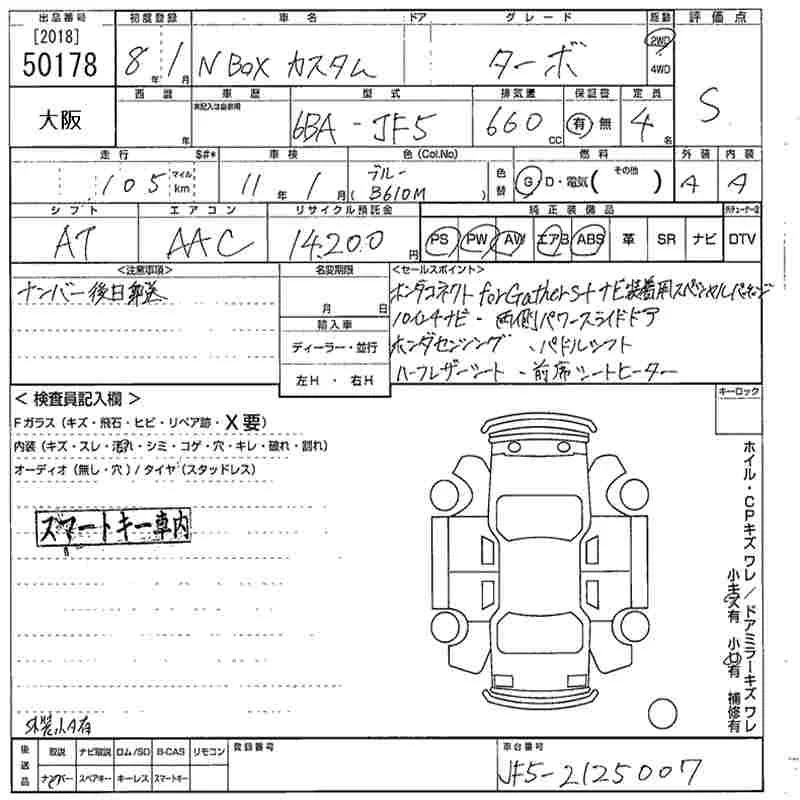 出品番号 初度登録 車名 ドア グレード 駆動 評価点
[2018]
50178 8年1月 N BOX カスタム ターボ 2WD 4WD S
大阪 西暦 車歴 型式 排気量 保証書 定員
年 未記入は自家用 6BA-JF5 660cc 有 無 4名
走行 S#* 車検 色(Col.No) 色替 燃料 外装 内装
105 マイル km 11年1月 ブルー (B610M) G・D・電気( その他 ) A A
シフト エアコン リサイクル預託金 純正装備品
AT AAC 14,200円 PS PW AW エアB ABS 革 SR ナビ DTV
<注意事項> 名変期限 <セールスポイント>
ナンバー後日郵送 月 日 ホンダコネクト for Gathers+ナビ装着用スペシャルパッケージ
輸入車 10インチナビ・両側パワースライドドア
ディーラー・並行 ホンダセンシング・パドルシフト
左H・右H ハーフレザーシート・前席シートヒーター
キーロック
< 検査員記入欄 >
Fガラス(キズ・飛石・ヒビ・リペア跡・X要)
内装(キズ・スレ・汚れ・シミ・コゲ・穴・キレ・破れ・割れ)
オーディオ(無し・穴)/タイヤ(スタッドレス)
スマートキー車内
ホイル・CPキズ ワレ/ドアミラーキズ ワレ
小キズ有 小凹有 補修有
外装小A有
後送品 取説 ナビ取説 ロム/SD B-CAS リモコン 登録番号 車台番号
ナンバー スペアキー キーレス スマートキー JF5-2125007